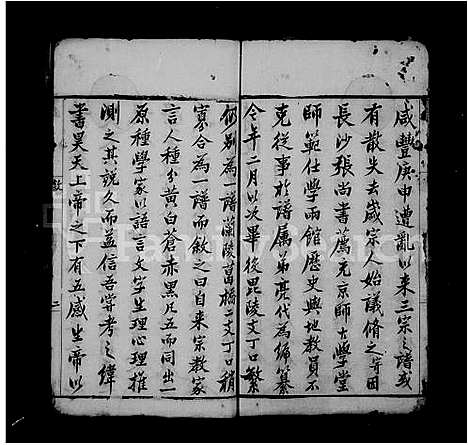 咸豐庚申遭亂以來三宗之譜或
有散失去歲宗人始議脩之寄因
長沙張尚書薦充京師大學堂
師範仕學兩館歷史輿地教員不
克從事於譜屬弟亮代為編纂
今年二月以次畢後毘陵支丁口繁
夥別為一譜蘭陵葛橋二支丁口稍
寡合為一譜而敘之曰自來宗教家
言人種分黃白蒼赤黑凡五而同出一
原種學家以語言文字生理心理推
測之其說久而益信吾嘗考之緯
書昊天上帝之下有五感生帝以
敘
二
FamilySearch